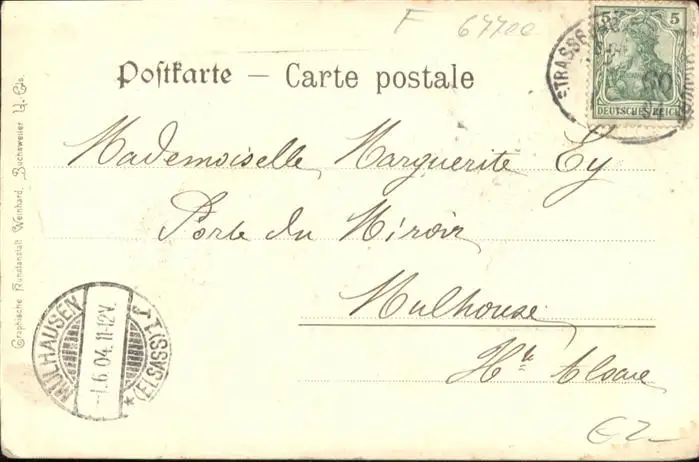 F 67700
5 5
DEUTSCHES REICH
STRASSB
Postkarte – Carte postale
Mademoiselle Marguerite Ey
Porte du Miroir
Mulhouse
Hte Alsace
MÜLHAUSEN
-1.6.04.11-12V.
* (ELSASS) 1
Graphische Kunstanstalt Weinhard, Buchsweiler U.-Els.